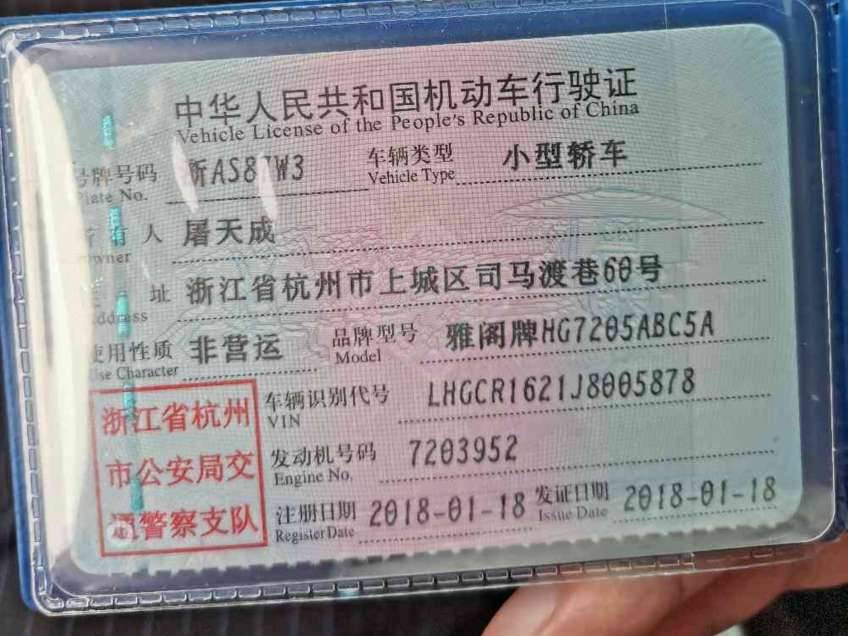 中华人民共和国机动车行驶证
Vehicle License of the People's Republic of China
号牌号码 车辆类型 小型轿车
Plate No. Vehicle Type
有人 屠天成
址 浙江省杭州市上城区司马渡巷60号
使用性质 非营运 品牌型号 雅阁牌HG7205ABC5A
Use Character Model
浙江省杭州
市公安局交
通警察支队
车辆识别代号 LHGCR1621J8005878
VIN
发动机号码 7203952
Engine No.
注册日期 2018-01-18 发证日期 2018-01-18
Register Date Issue Date